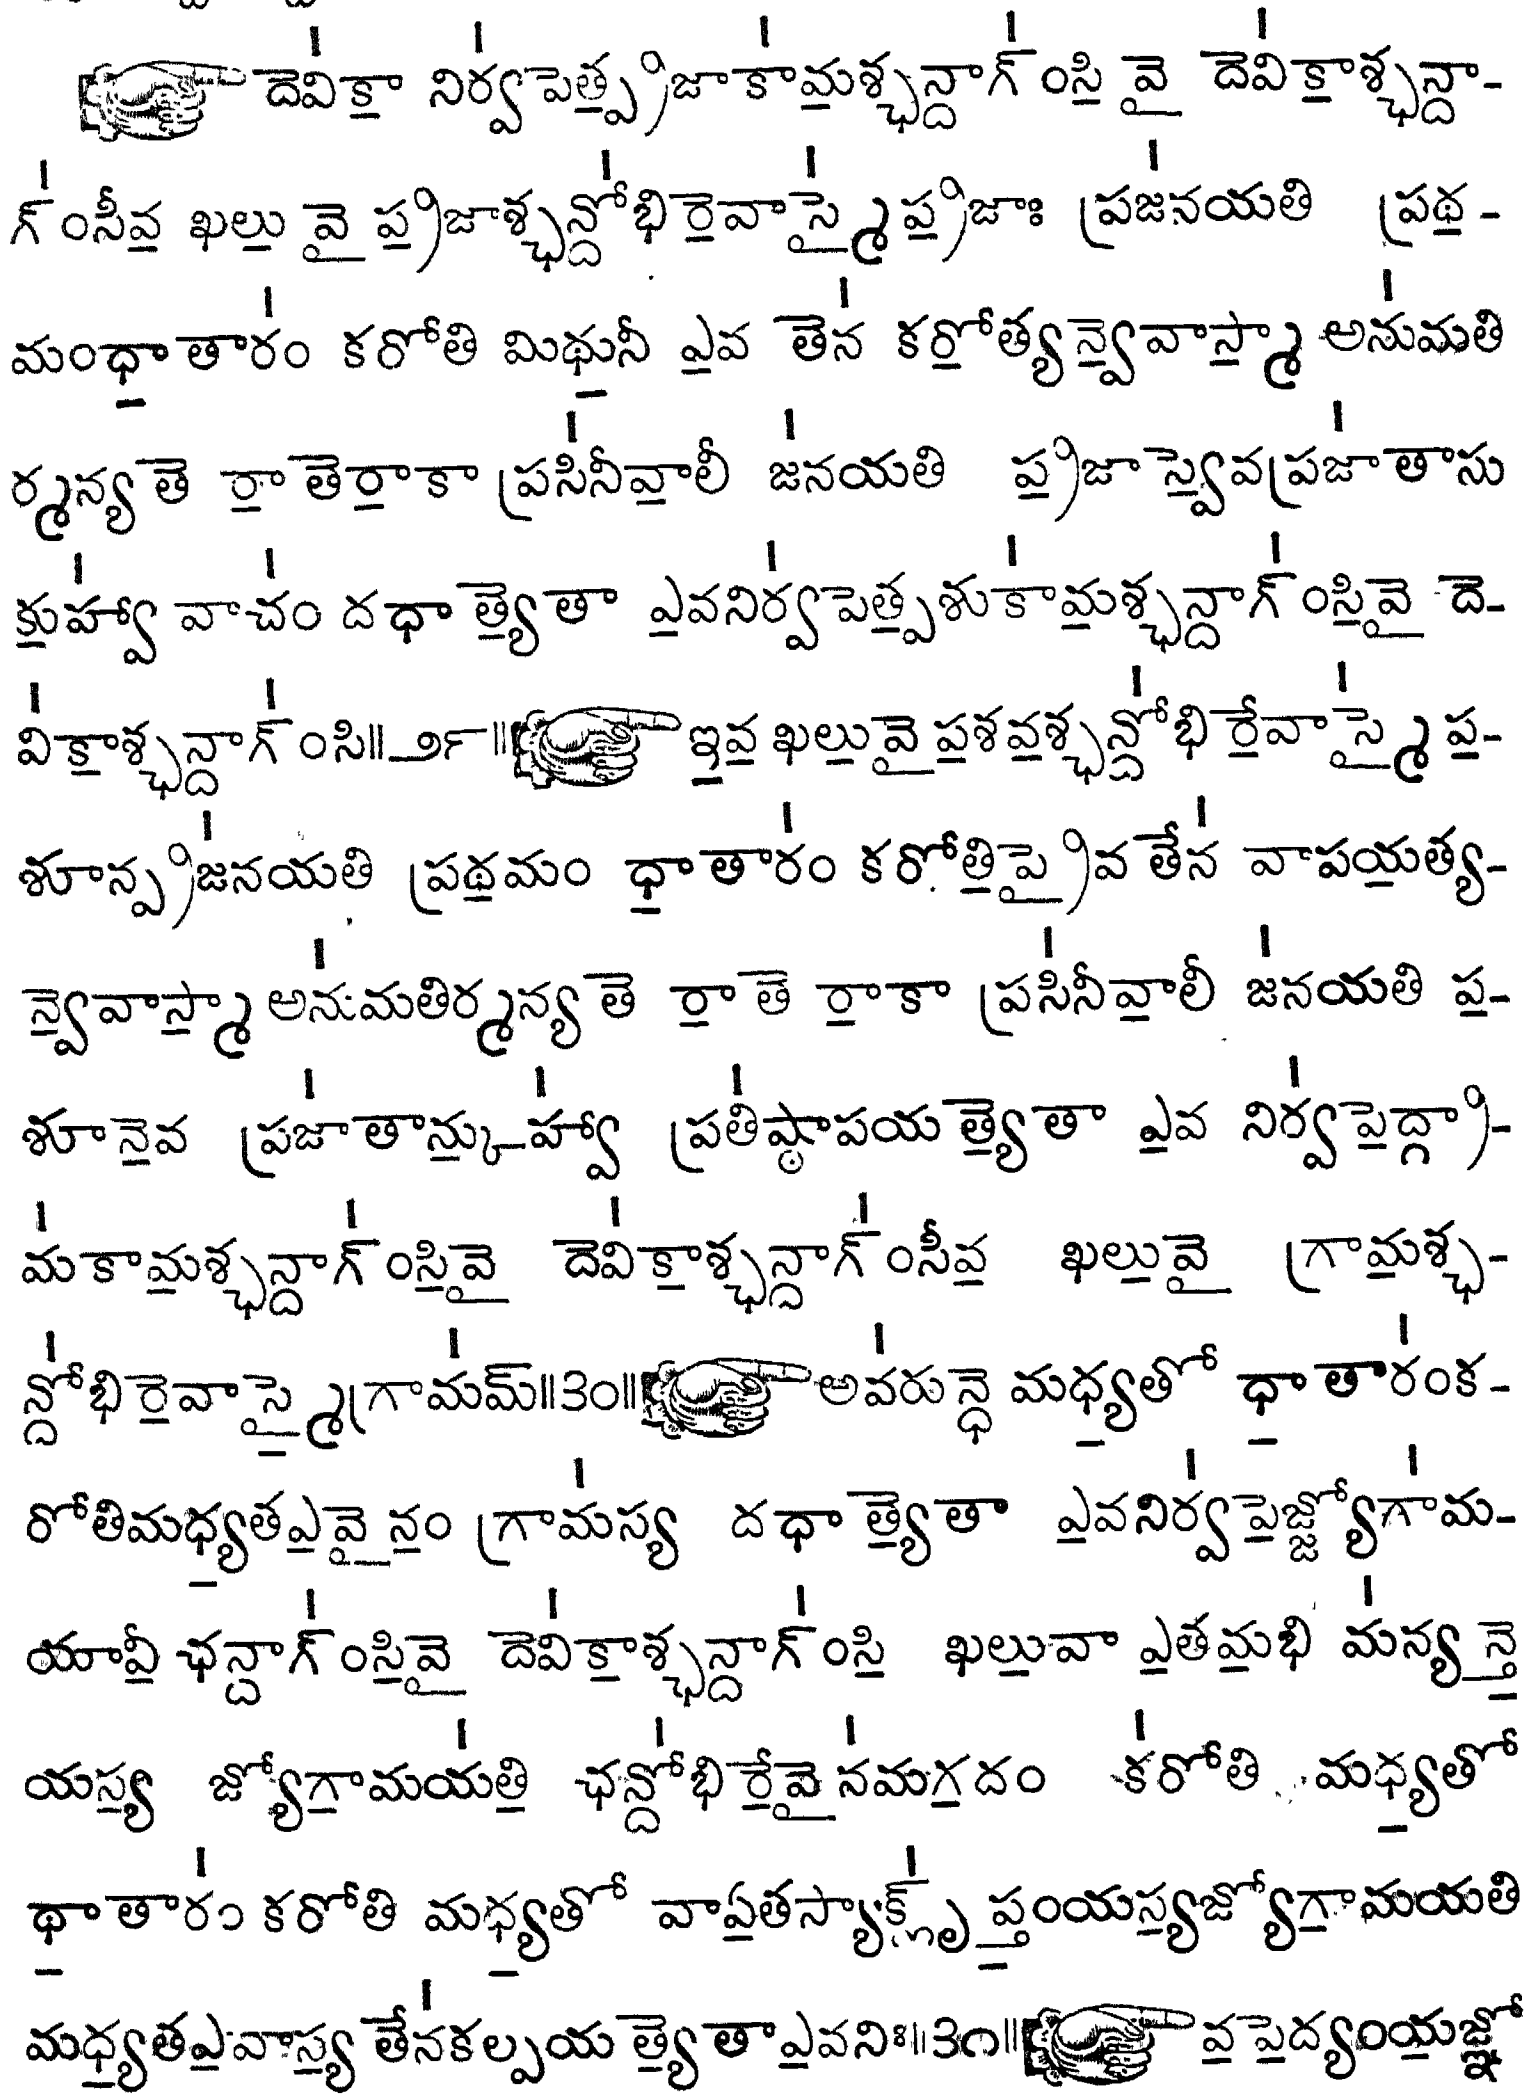 దేవి॑కా నిర్వ॑పేత్ప్ర॒జాకా॑మ॒శ్ఛన్దాగ్॑ంసి॒ వై దేవి॑కా॒శ్ఛన్దా-
గ్॑ంసీవ॒ ఖలు॒ వై ప్ర॒జాశ్ఛన్దో॑భిరే॒వాస్మై᳚ ప్ర॒జాః ప్రజ॑నయతి ప్రథ॒-
మంధా॒తారం॑ కరోతి మిథు॒నీ ఏ॒వ తేన॑ కరో॒త్యన్వే॒వాస్మా॒ అను॑మతి
ర్మన్యతే రా॒తేరా॒కా ప్రసి॑నీవా॒లీ జ॑నయతి ప్ర॒జాస్వే॒వప్రజా॑తాసు
కు॒హ్వా॑ వాచం॑ దధాత్యే॒తా ఏ॒వనిర్వ॑పేత్ప॒శుకా॑మ॒శ్ఛన్దాగ్॑ంసి॒వై దే-
వి॑కా॒శ్ఛన్దాగ్॑ంసి॥౨౯॥ ఇ॒వ॒ ఖలు॒వై ప॒శవ॒శ్ఛన్దో॑భిరే॒వాస్మై॑ ప॒-
శూన్ప్రజ॑నయతి ప్రథ॒మం ధా॒తారం॑ కరోతి॒ప్రైవ తేన॑ వాపయ॒త్య-
న్వే॒వాస్మా॒ అను॑మతిర్మన్యతే రా॒తే రా॒కా ప్రసి॑నీవా॒లీ జ॑నయతి ప॒-
శూనే॒వ ప్రజా॑తాన్కు॒హ్వా॑ ప్రతి॑ష్ఠాపయత్యే॒తా ఏ॒వ నిర్వ॑పే॒ద్గ్రా-
మ॑కామ॒శ్ఛన్దాగ్॑ంసి॒వై దేవి॑కా॒శ్ఛన్దాగ్॑ంసీవ॒ ఖలు॒వై గ్రామ॒శ్ఛ-
న్దో॑భిరే॒వాస్మై॒గ్రామ॑మ్॥౩౦॥ అవ॑రున్ధే మధ్య॒తో ధా॒తారం॑క-
రోతిమధ్య॒తఏ॒వైనం॒ గ్రామ॑స్య దధాత్యే॒తా ఏ॒వనిర్వ॑పే॒జ్జ్యోగా॑మ-
యావీ॒ ఛన్దాగ్॑ంసి॒వై దేవి॑కా॒శ్ఛన్దాగ్॑ంసి॒ ఖలు॒వా ఏ॒తమ॒భి మ॑న్యన్తే॒
యస్య॒ జ్యోగా॒మయ॑తి॒ ఛన్దో॑భిరే॒వైన॑మగ॒దం క॑రోతి మధ్య॒తో
ధా॒తారం॑ కరోతి మధ్య॒తో వాఏ॒తస్యాక్లృ॑ప్తం॒యస్య॒జ్యోగా॒మయతి
మధ్య॒తఏ॒వాస్య॒ తేన॑కల్పయత్యే॒తాఏ॒వనిః॥౩౧॥ వ॒పే॒ద్యంయ॒జ్ఞో